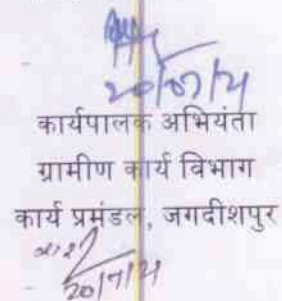 20/07/21
कार्यपालक अभियंता
ग्रामीण कार्य विभाग
कार्य प्रमंडल, जगदीशपुर
20/7/21